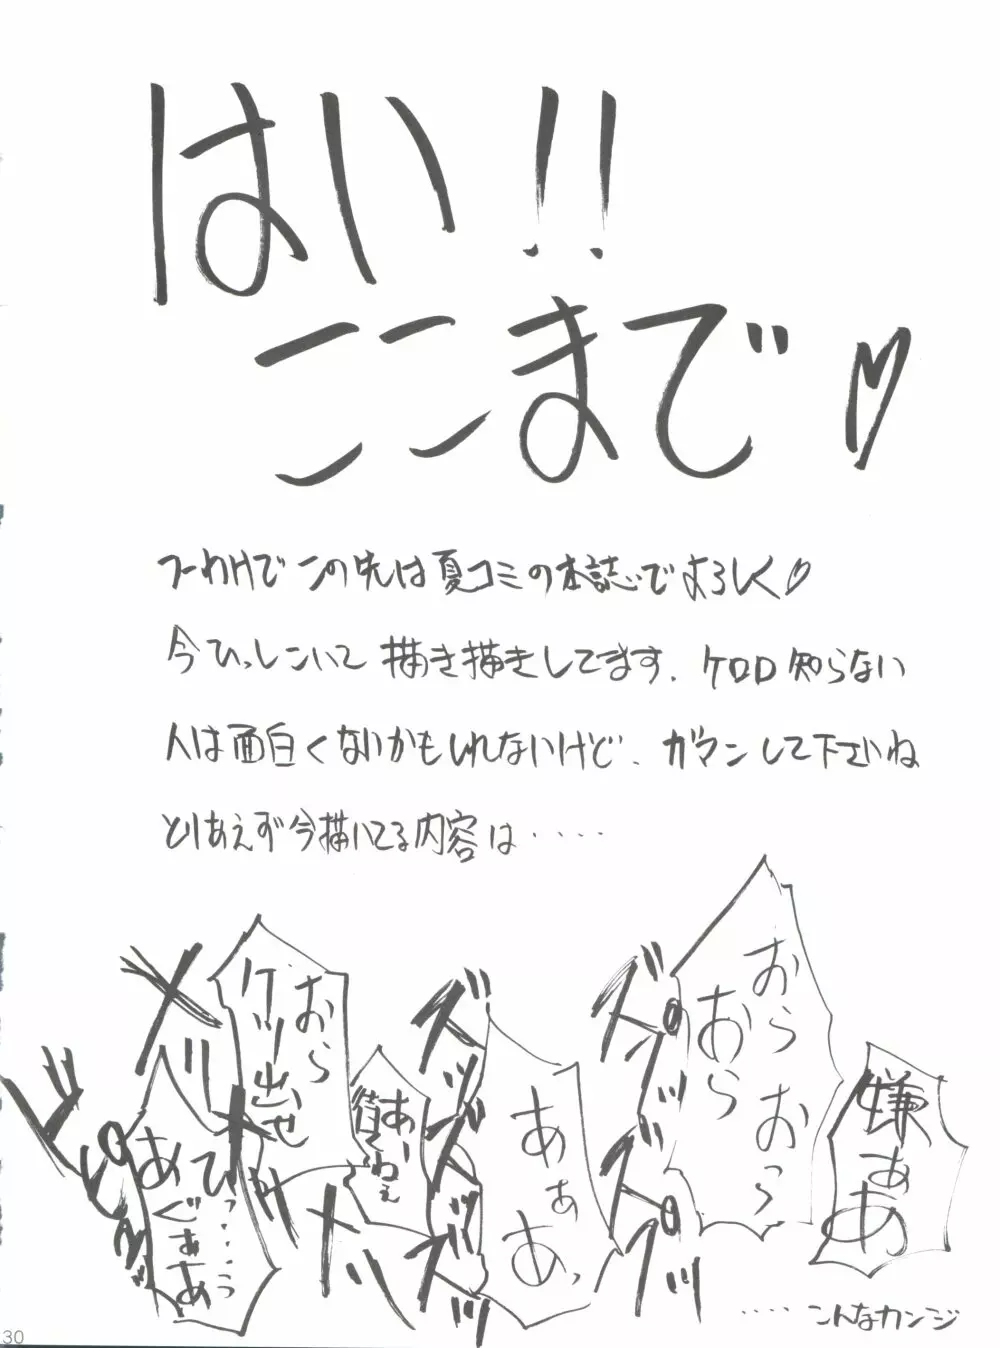 はい!!
ここまで♡
つーわけでこの先は夏コミの本誌でよろしく♡
今ひっしこいて描き描きしてます. ケロロ知らない
人は面白くないかもしれないけど. ガマンして下さいね
とりあえず今描いてる内容は‥‥‥
嫌ぁあ
おらおらおっおら
あぁあっ
あー
おらケツ出せ
ひっ‥‥‥う
あぐぁあ
‥‥こんなカンジ
30